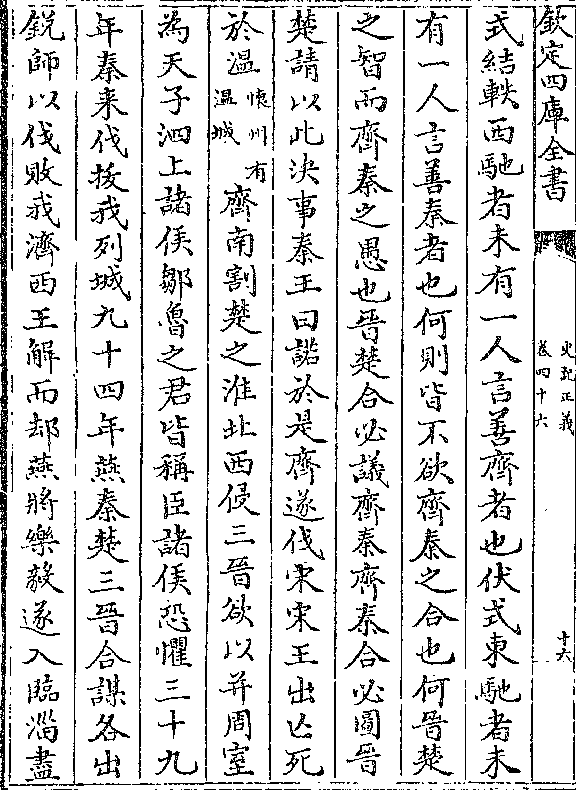 欽定四庫全書
史記正義
卷四十六
十六
式結軼西馳者未有一人言善齊者也伏式東馳者未
有一人言善秦者也何則皆不欲齊秦之合也何晉楚
之智而齊秦之愚也晉楚合必議齊秦齊秦合必圖晉
楚請以此決事秦王曰諾於是齊遂伐宋宋王出亡死
於温懷州有温城齊南割楚之淮北西侵三晉欲以并周室
為天子泗上諸侯鄒魯之君皆稱臣諸侯恐懼三十九
年秦来伐拔我列城九十四年燕秦楚三晉合謀各出
銳師以伐敗我濟西王解而却燕將樂毅遂入臨淄盡